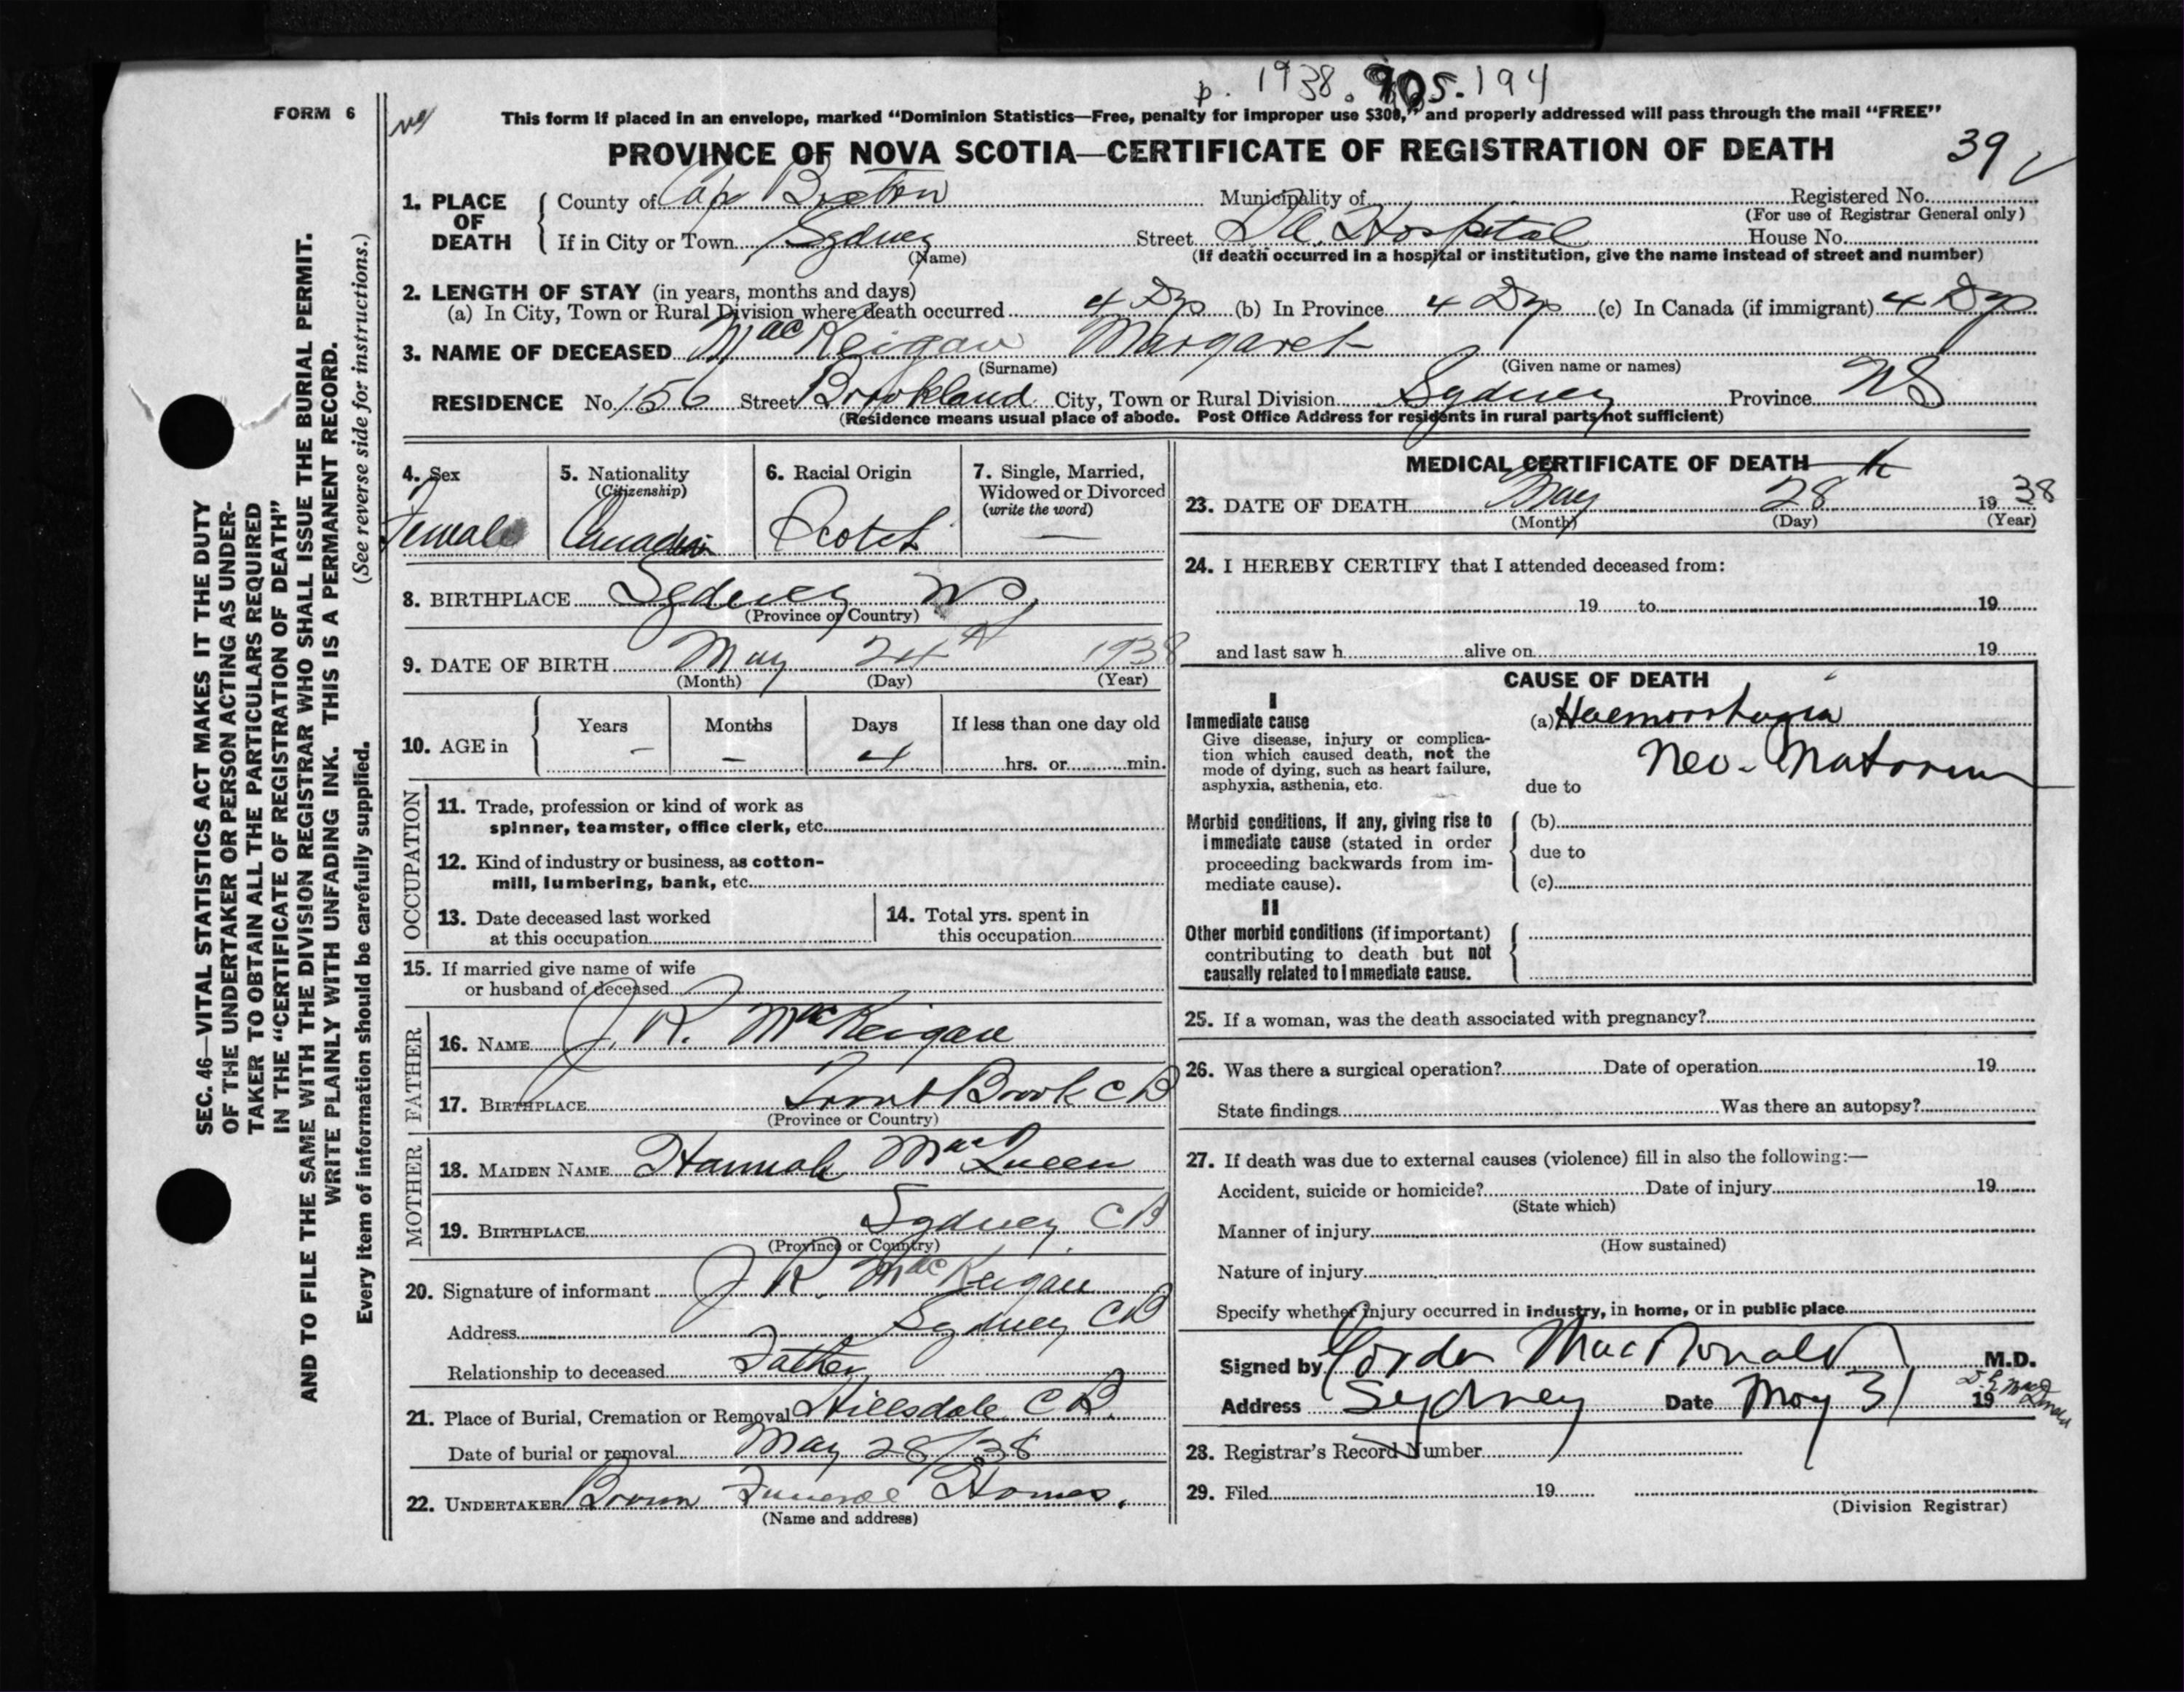 p. 1938. 905.194
FORM 6
This form if placed in an envelope, marked “Dominion Statistics—Free, penalty for improper use $300,” and properly addressed will pass through the mail “FREE”
PROVINCE OF NOVA SCOTIA—CERTIFICATE OF REGISTRATION OF DEATH
39
1. PLACE OF DEATH
County of Cape Breton Municipality of Registered No.
(For use of Registrar General only)
If in City or Town Sydney Street Hospital House No.
(Name) (If death occurred in a hospital or institution, give the name instead of street and number)
2. LENGTH OF STAY (in years, months and days)
(a) In City, Town or Rural Division where death occurred 4 Dys (b) In Province 4 Dys (c) In Canada (if immigrant) 4 Dys
3. NAME OF DECEASED MacKeigan Margaret
(Surname) (Given name or names)
RESIDENCE No. 156 Street Brookland City, Town or Rural Division Sydney Province NS
(Residence means usual place of abode. Post Office Address for residents in rural parts not sufficient)
4. Sex
Female
5. Nationality
(Citizenship)
Canadian
6. Racial Origin
Scotch
7. Single, Married,
Widowed or Divorced
(write the word)
—
8. BIRTHPLACE Sydney NS.
(Province or Country)
9. DATE OF BIRTH May 24th 1938
(Month) (Day) (Year)
10. AGE in
Years Months Days If less than one day old
- - 4 hrs. or min.
OCCUPATION
11. Trade, profession or kind of work as
spinner, teamster, office clerk, etc.
12. Kind of industry or business, as cotton-
mill, lumbering, bank, etc.
13. Date deceased last worked
at this occupation
14. Total yrs. spent in
this occupation
15. If married give name of wife
or husband of deceased
FATHER
16. NAME J. R. MacKeigan
17. BIRTHPLACE Trout Brook C B
(Province or Country)
MOTHER
18. MAIDEN NAME Hannah MacQueen
19. BIRTHPLACE Sydney CB
(Province or Country)
20. Signature of informant J. R. MacKeigan
Address Sydney CB
Relationship to deceased Father
21. Place of Burial, Cremation or Removal Hillsdale C B.
Date of burial or removal May 28/38
22. UNDERTAKER Brown Funeral Homes.
(Name and address)
MEDICAL CERTIFICATE OF DEATH
23. DATE OF DEATH May 28th 1938
(Month) (Day) (Year)
24. I HEREBY CERTIFY that I attended deceased from:
19 to 19
and last saw h alive on 19
CAUSE OF DEATH
I
Immediate cause
Give disease, injury or complica-
tion which caused death, not the
mode of dying, such as heart failure,
asphyxia, asthenia, etc.
(a) Haemorrhagia
Neo-Natorum
due to
Morbid conditions, if any, giving rise to
immediate cause (stated in order
proceeding backwards from im-
mediate cause).
(b)
due to
(c)
II
Other morbid conditions (if important)
contributing to death but not
causally related to immediate cause.
25. If a woman, was the death associated with pregnancy?
26. Was there a surgical operation? Date of operation 19
State findings Was there an autopsy?
27. If death was due to external causes (violence) fill in also the following:—
Accident, suicide or homicide? Date of injury 19
(State which)
Manner of injury
(How sustained)
Nature of injury
Specify whether injury occurred in industry, in home, or in public place
Signed by Gordon MacDonald M.D.
Address Sydney Date May 31 19
28. Registrar's Record Number
29. Filed 19
(Division Registrar)
SEC. 46—VITAL STATISTICS ACT MAKES IT THE DUTY
OF THE UNDERTAKER OR PERSON ACTING AS UNDER-
TAKER TO OBTAIN ALL THE PARTICULARS REQUIRED
IN THE “CERTIFICATE OF REGISTRATION OF DEATH”
AND TO FILE THE SAME WITH THE DIVISION REGISTRAR WHO SHALL ISSUE THE BURIAL PERMIT.
WRITE PLAINLY WITH UNFADING INK. THIS IS A PERMANENT RECORD.
Every item of information should be carefully supplied. (See reverse side for instructions.)